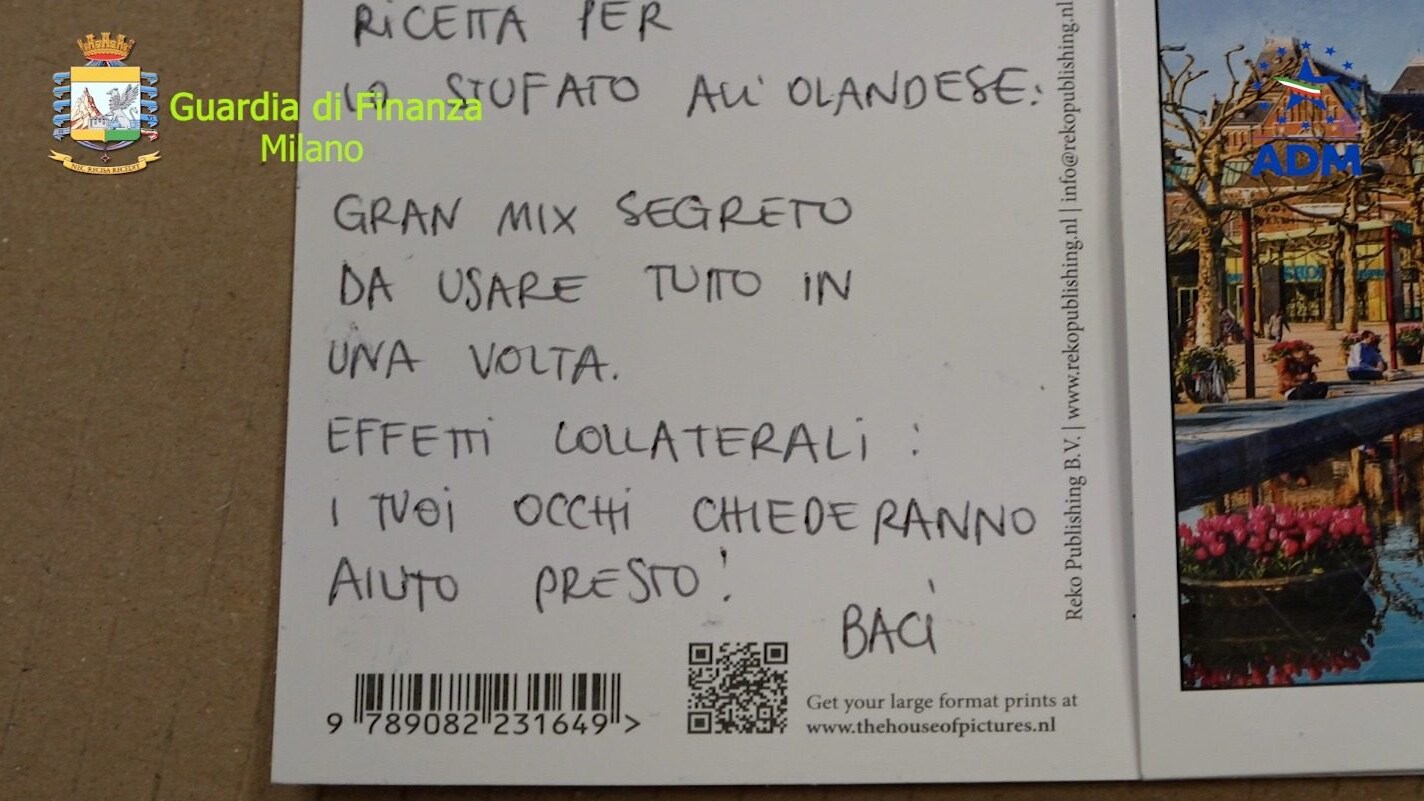 RICETTA PER
LO STUFATO ALL'OLANDESE:
GRAN MIX SEGRETO
DA USARE TUTTO IN
UNA VOLTA.
EFFETTI COLLATERALI:
I TUOI OCCHI CHIEDERANNO
AIUTO PRESTO!
BACI
9 789082 231649 >
Get your large format prints at
www.thehouseofpictures.nl
Reko Publishing B.V. | www.rekopublishing.nl | info@rekopublishing.nl
Guardia di Finanza
Milano
NEC RECISA RECEDIT
ADM